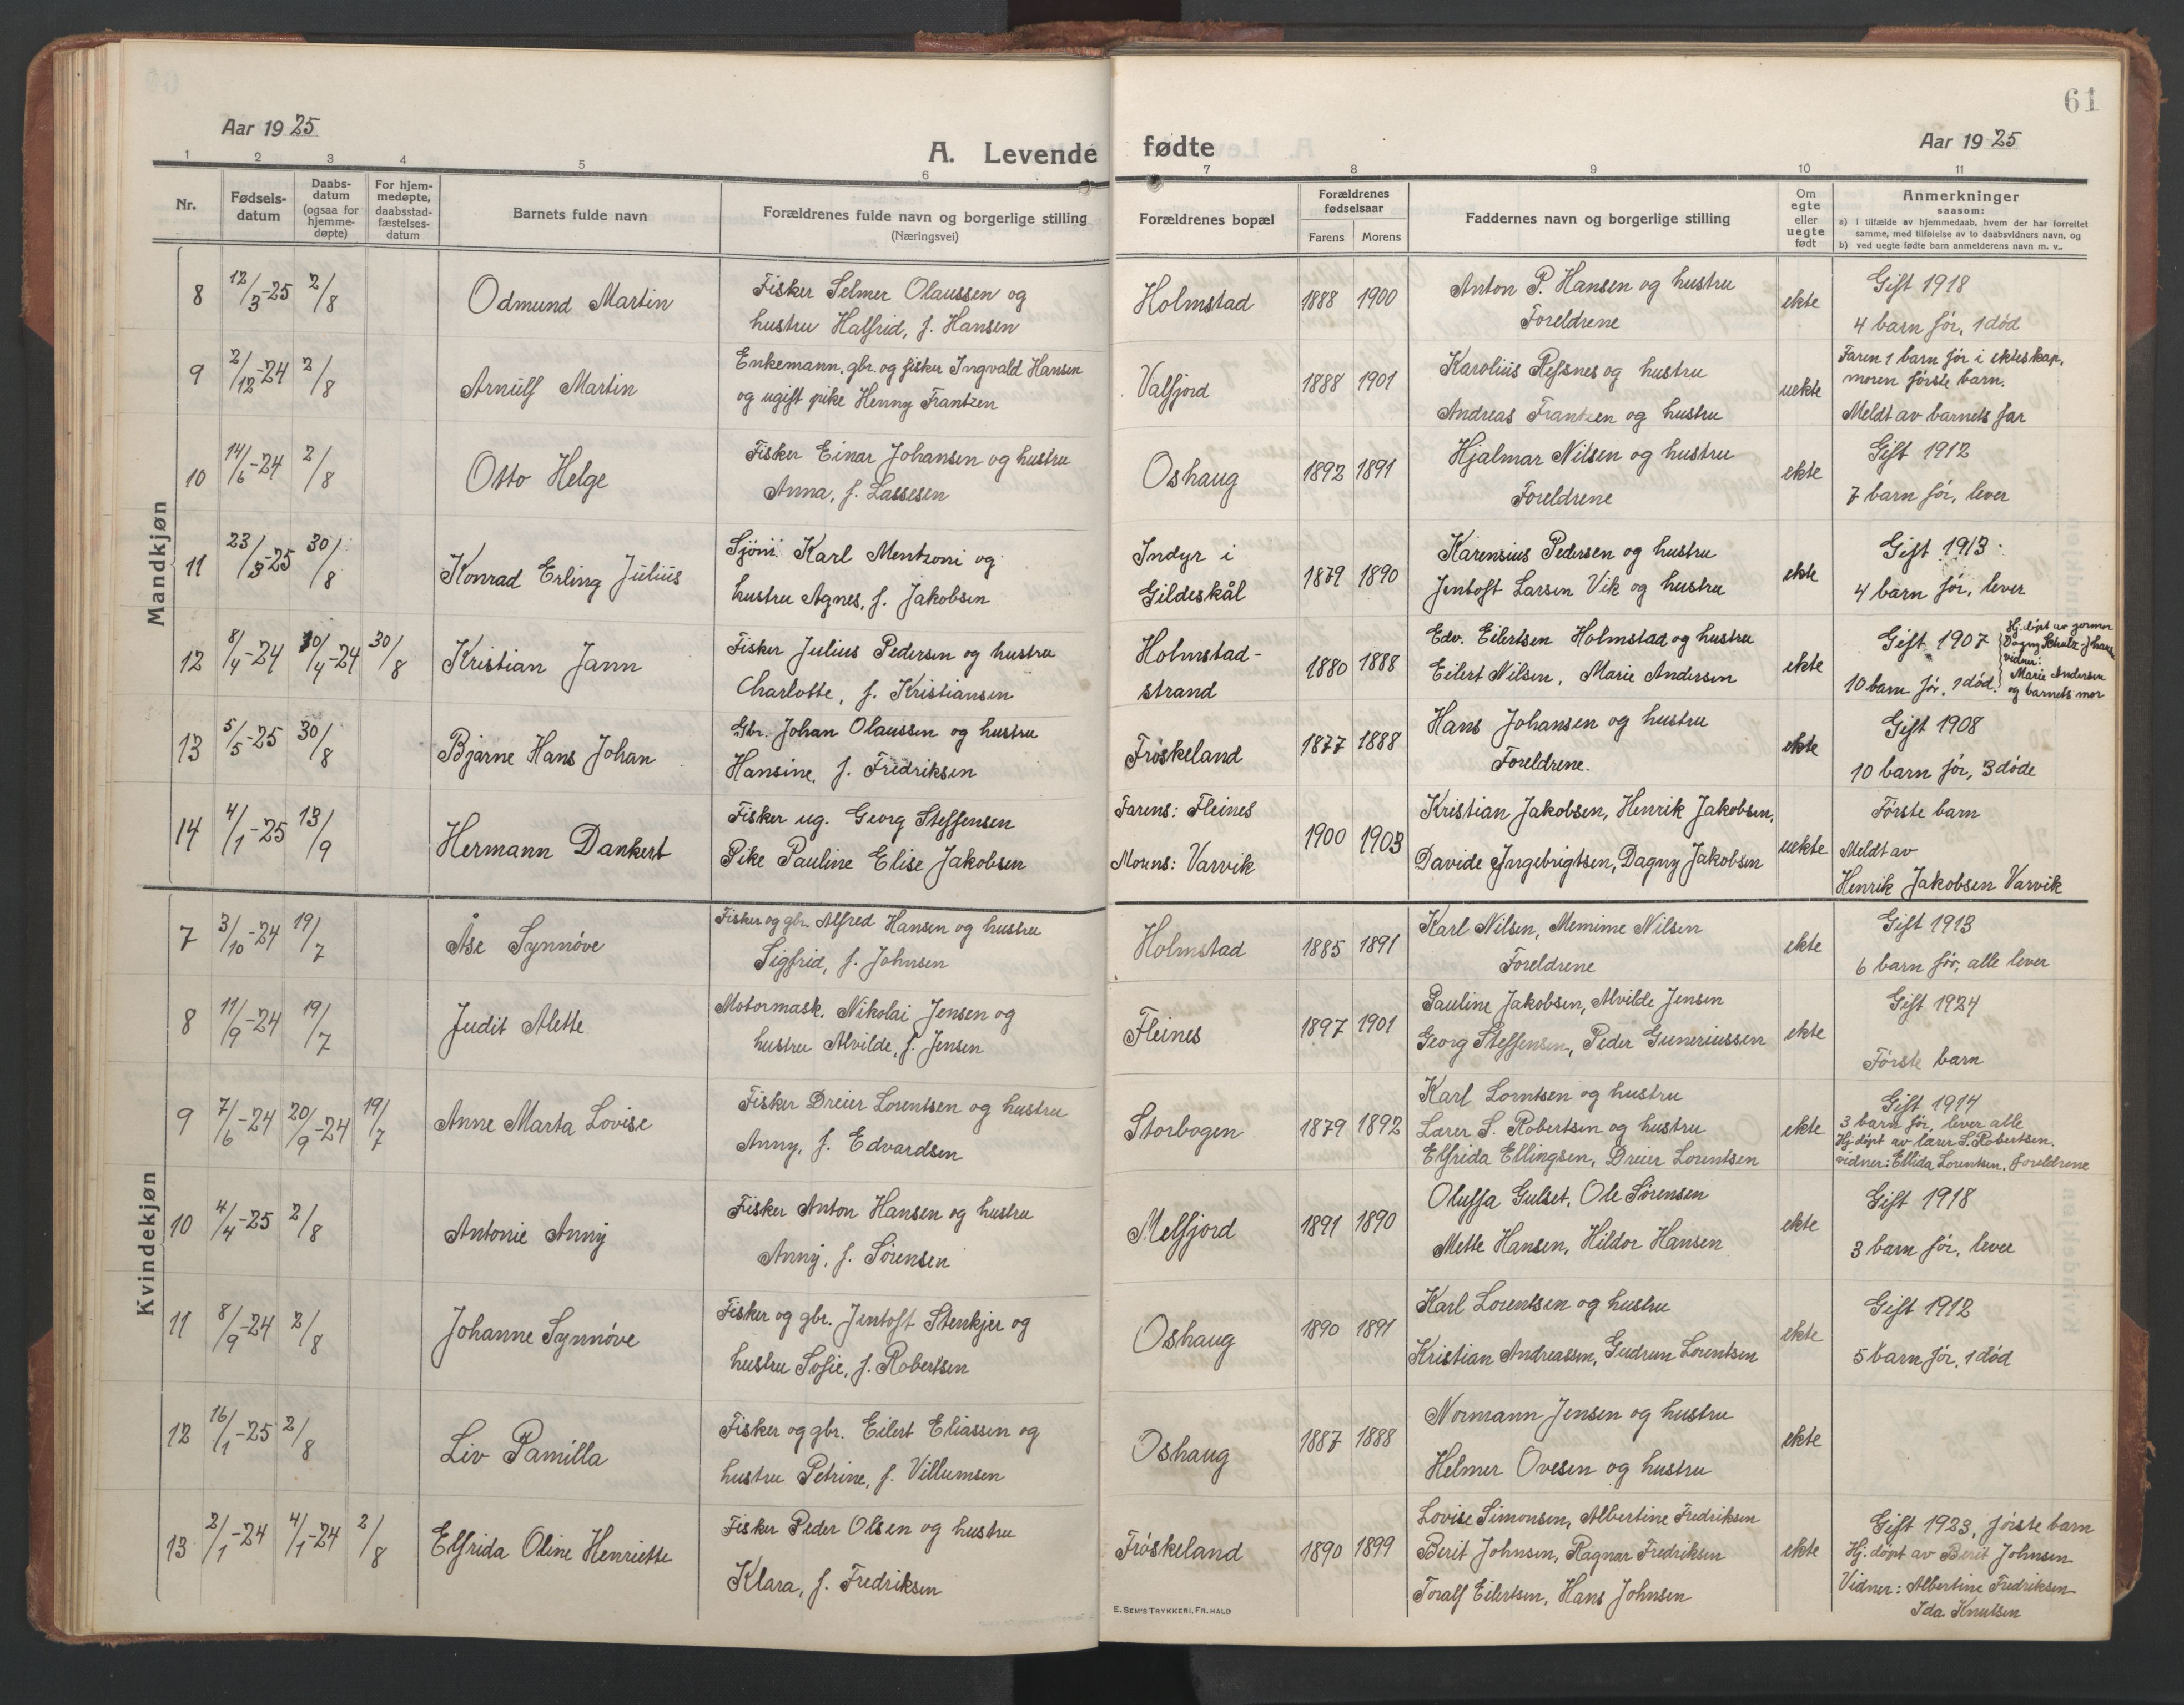 61
Aar 1925
A. Levende fødte
Aar 1925
1 2 3 4 5 6 7 8 9 10 11
Nr.
Fødsels-
datum
Daabs-
datum
(ogsaa for
hjemme-
døpte)
For hjem-
medøpte,
daabsstad-
fæstelses-
datum
Barnets fulde navn
Forældrenes fulde navn og borgerlige stilling
(Næringsvei)
Forældrenes bopæl
Forældrenes
fødselsaar
Farens Morens
Faddernes navn og borgerlige stilling
Om
egte
eller
uegte
født
Anmerkninger
saasom:
a) i tilfælde av hjemmedaab, hvem der har forrettet
samme, med tilføielse av to daabsvidners navn, og
b) ved uegte fødte barn anmelderens navn m. v..
Mandkjøn
8 12/3-25 2/8 Odmund Martin
Fisker Selmer Olaussen og
hustru Halfrid, f. Hansen
Holmstad 1888 1900
Anton P. Hansen og hustru
Foreldrene
ekte
Gift 1918
4 barn før, 1 død
9 2/12-24 2/8 Arnulf Martin
Enkemann, gbr. og fisker Ingvald Hansen
og ugift pike Henny Frantzen
Valfjord 1888 1901
Karolius Refsnes og hustru
Andreas Frantzen og hustru
uekte
Faren 1 barn før i ekteskap,
moren første barn.
Meldt av barnets far
10 14/6-24 2/8 Otto Helge
Fisker Einar Johansen og hustru
Anna, f. Lassesen
Oshaug 1892 1891
Hjalmar Nilsen og hustru
Foreldrene
ekte
Gift 1912
7 barn før, lever
11 23/3-25 30/8 Konrad Erling Julius
Sjøm. Karl Mentzoni og
hustru Agnes, f. Jakobsen
Indyr i
Gildeskål
1879 1890
Karensius Pedersen og hustru
Jentoft Larsen Vik og hustru
ekte
Gift 1913
4 barn før, lever
12 8/4-24 30/4-24 30/8 Kristian Jann
Fisker Julius Pedersen og hustru
Charlotte, f. Kristiansen
Holmstad-
strand
1880 1888
Edv. Eilertsen Holmstad og hustru
Eilert Nilsen, Marie Andersen
ekte
Gift 1907
10 barn før, 1 død.
Hj. døpt av jormor
Dagny Schulz-
vidner:
Marie Andersen
og barnets mor
13 5/5-25 30/8 Bjarne Hans Johan
Gbr. Johan Olaussen og hustru
Hansine, f. Fredriksen
Frøskeland 1877 1888
Hans Johansen og hustru
Foreldrene.
ekte
Gift 1908
10 barn før, 3 døde
14 4/1-25 13/9 Hermann Dankert
Fisker ug. Georg Steffensen
Pike Pauline Elise Jakobsen
Farens: Fleines
Morens: Varvik
1900 1903
Kristian Jakobsen, Henrik Jakobsen,
Davide Ingebrigtsen, Dagny Jakobsen
uekte
Første barn
Meldt av
Henrik Jakobsen Varvik
Kvindekjøn
7 3/10-24 19/7 Åse Synnøve
Fisker og gbr. Alfred Hansen og hustru
Sigfrid, f. Johnsen
Holmstad 1885 1891
Karl Nilsen, Memime Nilsen
Foreldrene
ekte
Gift 1913
6 barn før, alle lever
8 11/9-24 19/7 Judit Alette
Motormask. Nikolai Jensen og
hustru Alvilde, f. Jensen
Fleines 1897 1901
Pauline Jakobsen, Alvilde Jensen
Georg Steffensen, Peder Guneriussen
ekte
Gift 1924
Første barn
9 7/6-24 20/9-24 19/7 Anne Marta Lovise
Fisker Dreier Lorentsen og hustru
Anny, f. Edvardsen
Storbogen 1879 1892
Karl Lorntsen og hustru
Lærer S. Robertsen og hustru
Elfrida Ellingsen, Dreier Lorentsen
ekte
Gift 1914
3 barn før, lever alle
Hj. døpt av lærer S. Robertsen.
vidner: Ellida Lorentsen, foreldrene
10 4/4-25 2/8 Antonie Anny
Fisker Anton Hansen og hustru
Anny, f. Sørensen
Melfjord 1891 1890
Oluffa Gulset, Ole Sørensen
Mette Hansen, Hildor Hansen
ekte
Gift 1918
3 barn før, lever
11 8/9-24 2/8 Johanne Synnøve
Fisker og gbr. Jentoft Stenkjer og
hustru Sofie, f. Robertsen
Oshaug 1890 1891
Karl Lorentsen og hustru
Kristian Andreassen, Gudrun Lorentsen
ekte
Gift 1912
5 barn før, 1 død
12 16/1-25 2/8 Liv Pamilla
Fisker og gbr. Eilert Eliassen og
hustru Petrine, f. Villumsen
Oshaug 1887 1888
Normann Jensen og hustru
Helmer Ovesen og hustru
ekte
13 2/1-24 4/1-24 2/8 Elfrida Oline Henriette
Fisker Peder Olsen og hustru
Klara, f. Fredriksen
Frøskeland 1890 1899
Lovise Simonsen, Albertine Fredriksen
Berit Johnsen, Ragnar Fredriksen
Toralf Eilertsen, Hans Johnsen
ekte
Gift 1923, første barn
Hj. døpt av Berit Johnsen
Vidner: Albertine Fredriksen
Ida Knutsen
E. SEM'S TRYKKERI, FR.HALD